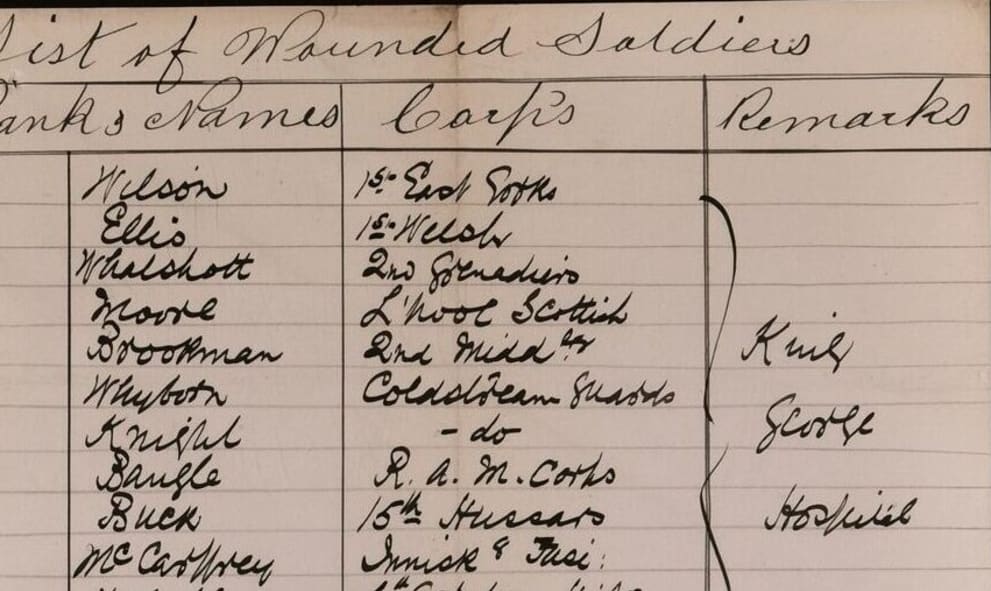 List of Wounded Soldiers
Rank & Names Corps Remarks
Wilson 1st East Yorks
Ellis 1st Welsh
Whalshott 2nd Grenadiers
Moore L'pool Scottish
Brookman 2nd Middx King
Whyborn Coldstream Guards
Knight - do George
Bangle R. A. M. Corps
Buck 15th Hussars Hospital
McCaffrey Innisk g Fusi: